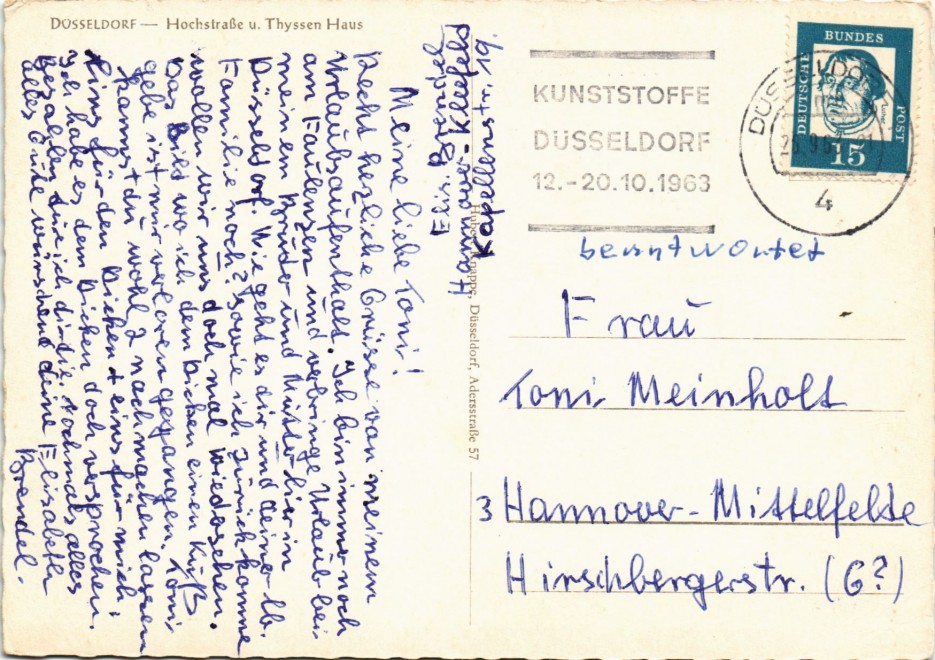 DÜSSELDORF — Hochstraße u. Thyssen Haus
Elis. Brendel
Hannover-Kleefeld
Kapellenstr.
Meine liebe Toni!
Recht hezliche Grüsse von meinem
Urlaubsaufenthalt. Ich bin immer noch
am Faulenzen und verbringe Urlaub bei
meinem Bruder und Mutter hier in
Düsseldorf. Wie geht es dir und deiner lb.
Familie noch? Sowie ich zurück komme
wollen wir uns doch mal wiedersehen.
Das Bild wo ich dem Dicken einen Kuß
gebe ist mir verloren gegangen. Toni
kannst du wohl 2 nachmachen lassen
eins für den Dicken + eins für mich.
Ich habe es dem Dicken doch versprochen.
Bezahlen tue ich dir die. Nochmals alles
alles Gute wünschend deine Elisabeth
Brendel.
Knappe, Düsseldorf, Adersstraße 57
KUNSTSTOFFE
DÜSSELDORF
12.-20.10.1963
DÜSSELDORF
4
DEUTSCHE BUNDESPOST
15
beantwortet
Frau
Toni Meinholt
3 Hannover-Mittelfelde
Hirschbergerstr. (6?)